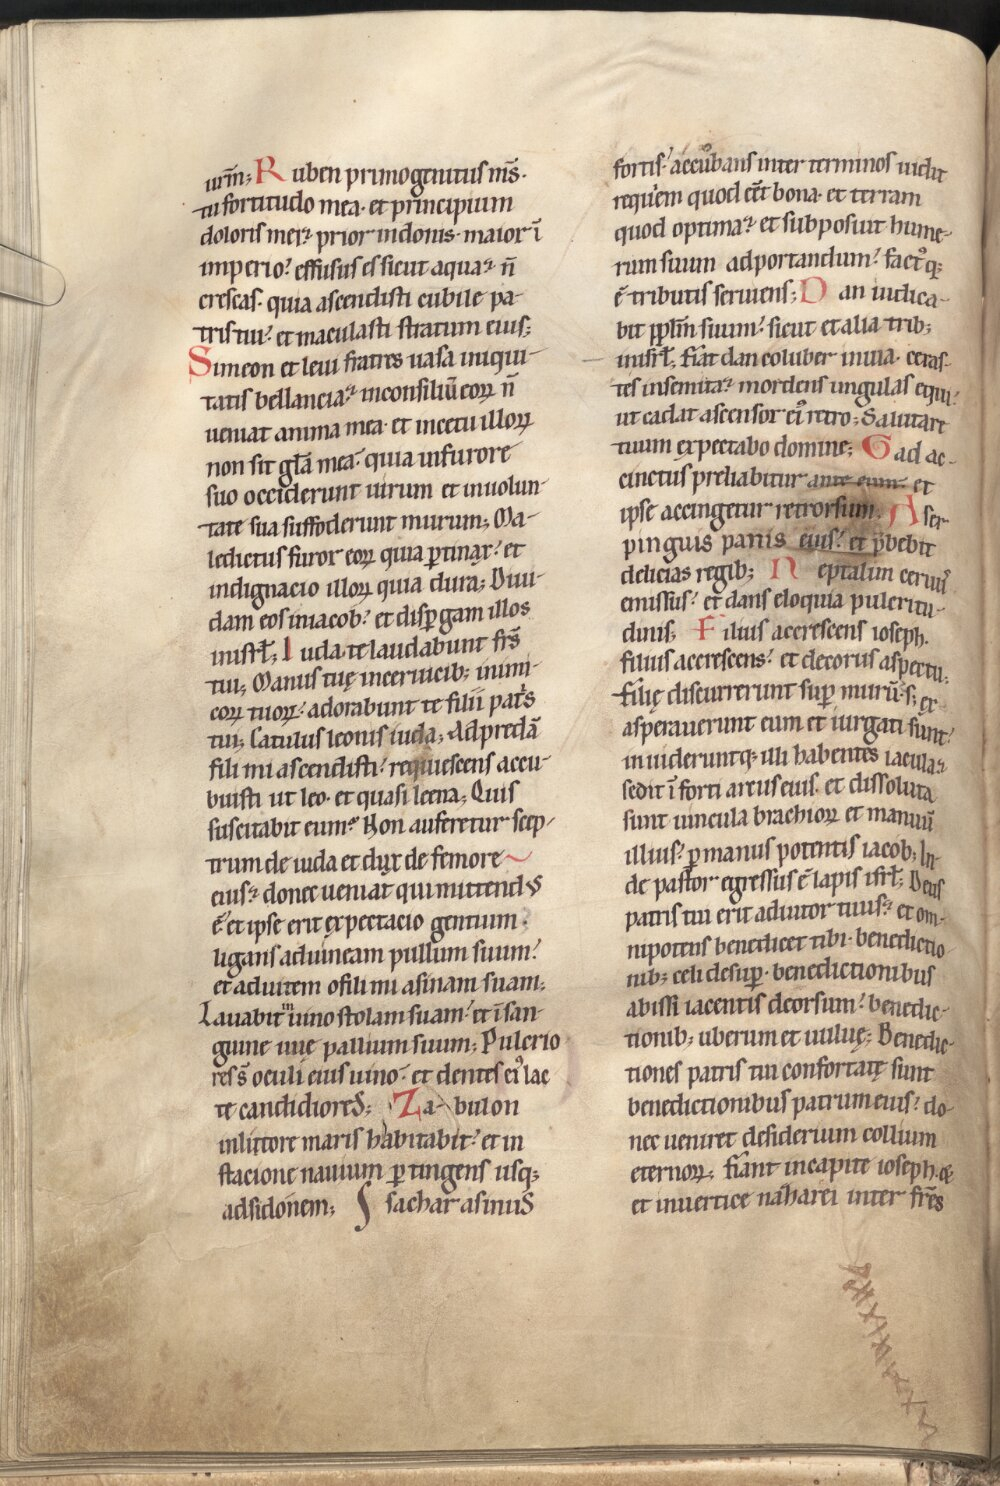 urm̅; Ruben primogenitus m̅s·
tu fortitudo mea· et principium
doloris mei; prior in donis· maior ī
imperio? effusus es sicut aqua; n̅
crescas· quia ascendisti cubile pa-
tris tui? et maculasti stratum eius;
Simeon et leui fratres uasa iniqui-
tatis bellancia; in consiliū eoꝝ n̅
ueniat anima mea· et in cetu illoꝝ
non sit gl̅a mea· quia in furore
suo occiderunt uirum et in uolun-
tate sua suffoderunt murum; Ma-
ledictus furor eoꝝ quia ꝑtinax? et
indignacio illoꝝ quia dura; Diui-
dam eos in iacob? et disꝑgam illos
in isrl̅; Iuda te laudabunt fr̅s
tui; Manus tuę in ceruicib; inimi-
coꝝ tuoꝝ? adorabunt te filii pat̅s
tui; Catulus leonis iuda; Ad predā
fili mi ascendisti? requiescens accu-
buisti ut leo· et quasi leena; Quis
suscitabit eum? Non auferetur scep-
trum de iuda et dux de femore
eius; donec ueniat qui mittend᷒s
ē et ipse erit expectacio gentium·
ligans ad uineam pullum suum?
et ad uitem o fili mi asinam suam;
Lauabit in uino stolam suam? et ī san-
guine uue pallium suum; Pulcrio
res s̅ oculi eius uino? et dentes eiꝰ lac
te candidiores; Zabulon
in littore maris habitabit? et in
stacione nauium ꝑtingens usq;
ad sidonem; Isachar asinus
fortis? accubans inter terminos uidit
requiem quod eēt bona· et terram
quod optima; et supposuit hume-
rum suum ad portandum? factꝰq;
ē tributis seruiens; Dan iudica-
bit ppl̅m suum? sicut et alia trib;
in isrl̅; fiat dan coluber in uia· ceras-
tes in semita; mordens ungulas equi?
ut cadat ascensor eiꝰ retro; Salutare
tuum expectabo domine; Gad ac-
cinctus preliabitur ante eum et
ipse accingetur retrorsum. Aser
pinguis panis eius? et p̅bebit
delicias regib; Neptalim ceruꝰ
emissus? et dans eloquia pulcritu-
dinis; Filius accrescens ioseph.
filius accrescens? et decorus aspectu;
filię discurrerunt suꝑ murū· s; ex
asperauerunt eum et iurgati sunt?
inuideruntq; illi habentes iacula;
sedit ī forti arcus eius· et dissoluta
sunt uincula brachioꝝ et manuū
illius? ꝑ manus potentis iacob; In
de pastor egressus ē lapis isrl̅; Deus
patris tui erit adiutor tuus; et om-
nipotens benedicet tibi· benedictio
nib; celi desuꝑ· benedictionibus
abissi iacentis deorsum? benedic-
tionib; uberum et uuluę; Benedic-
tiones patris tui confortatę sunt
benedictionibus patrum eius? do-
nec ueniret desiderium collium
eternoꝝ; fiant in capite ioseph.
et in uertice naharei inter fr̅es